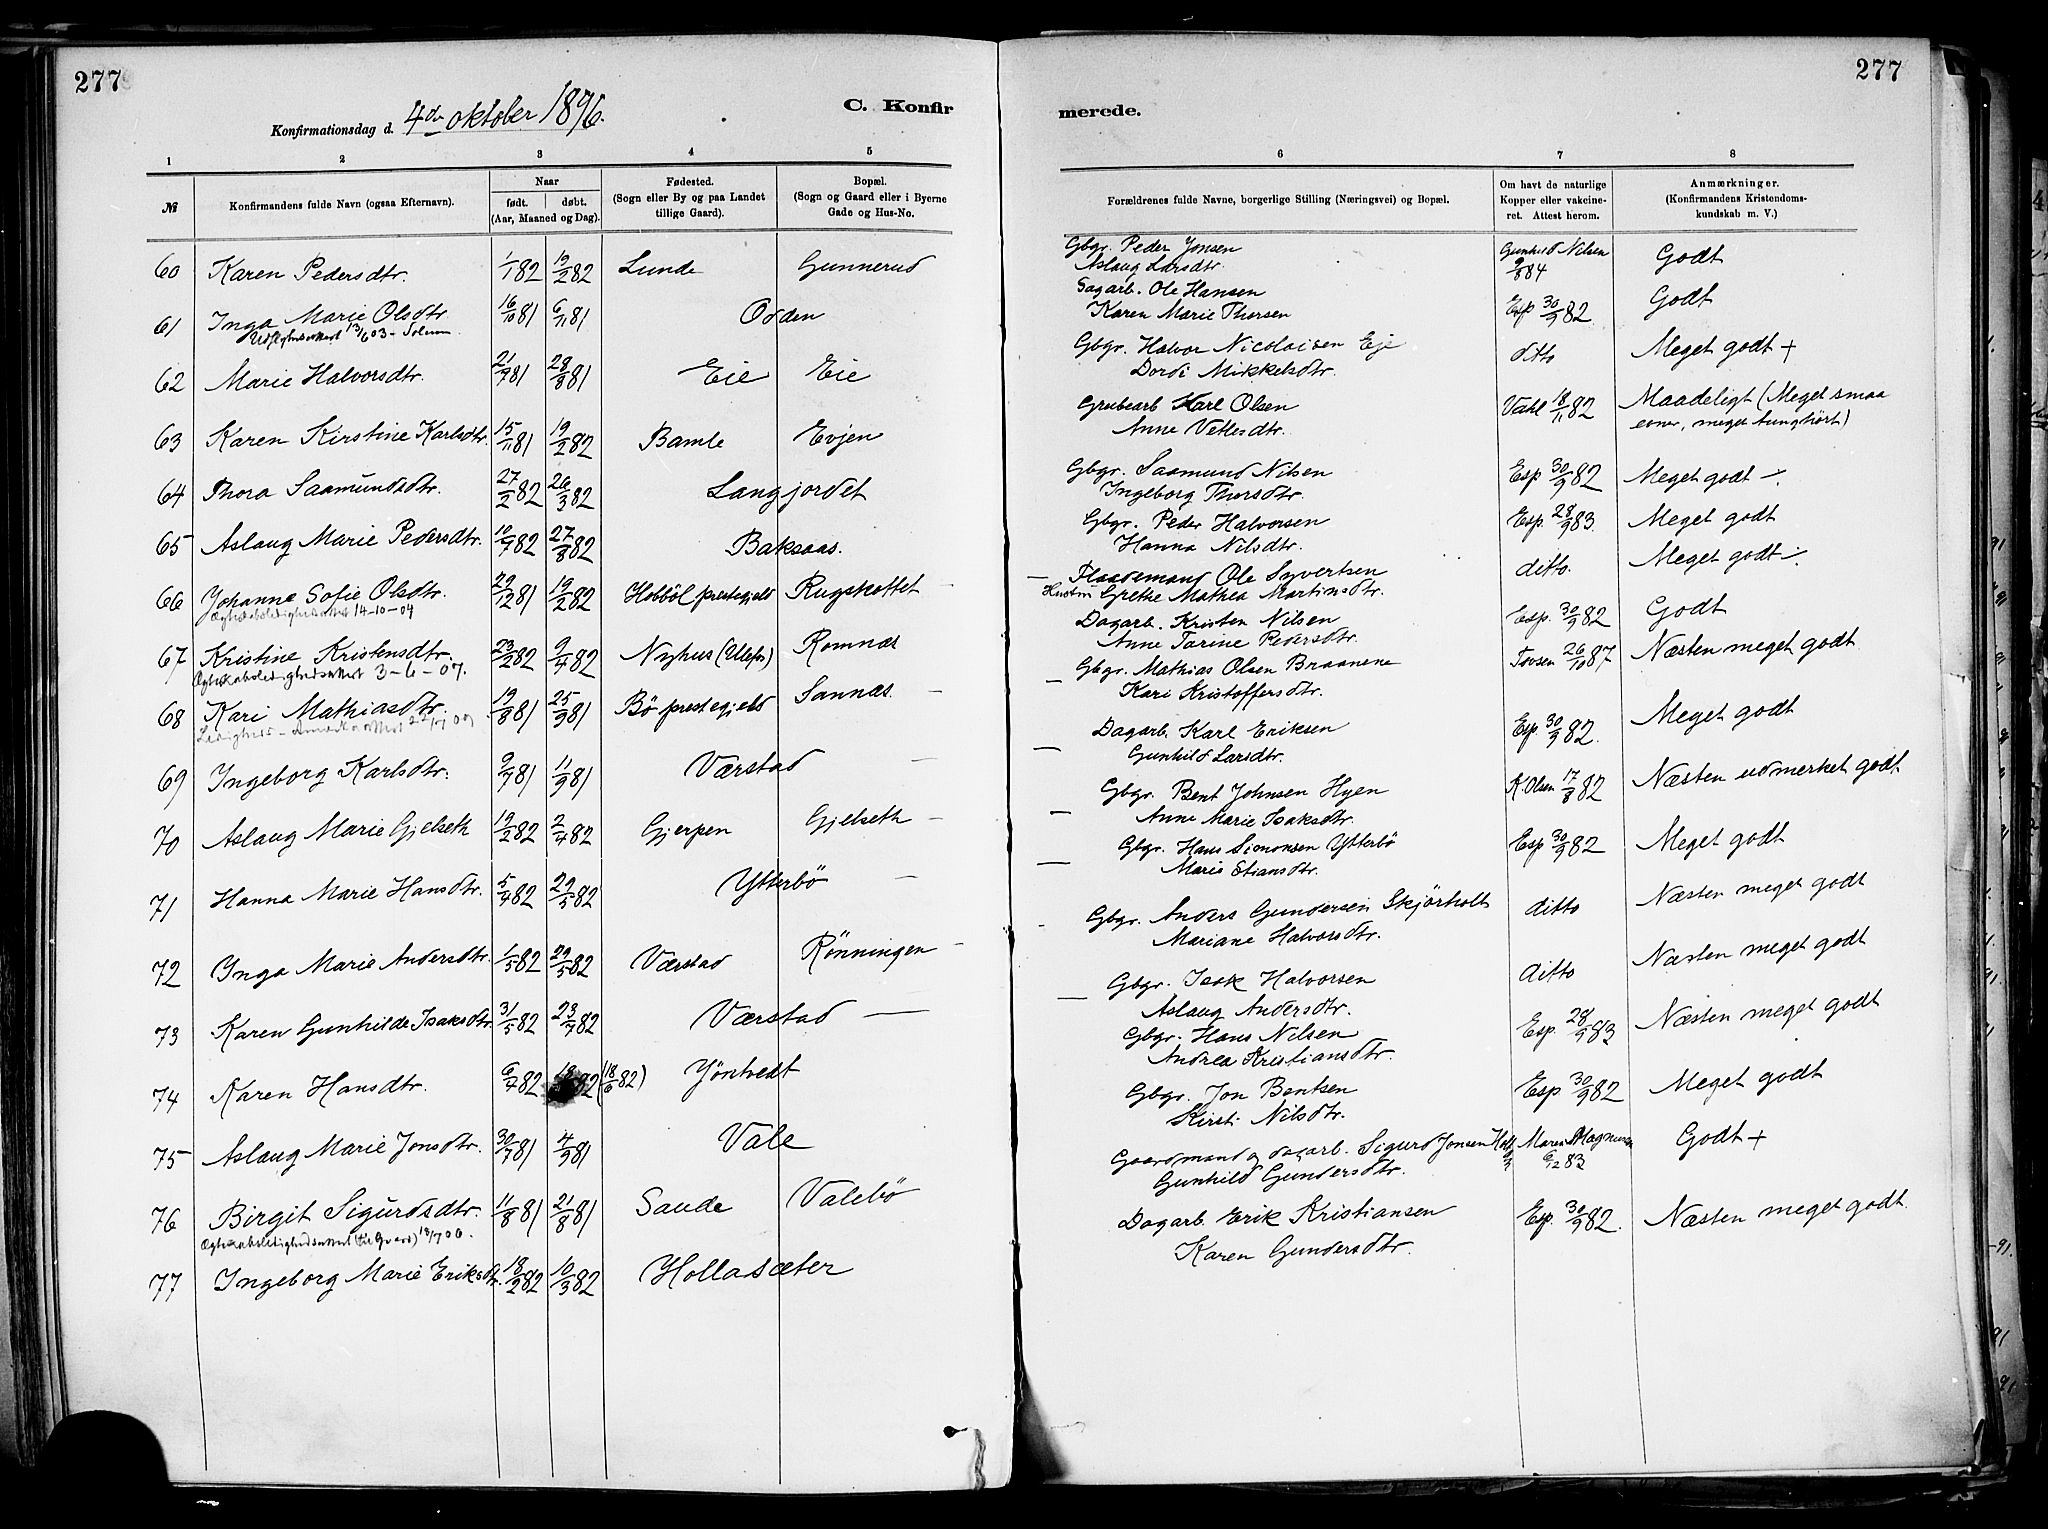 277
277
Konfirmationsdag d. 4de oktober 1896.
C. Konfir
merede.
1 2 3 4 5 6 7 8
№ Konfirmandens fulde Navn (ogsaa Efternavn). Naar født. døbt. (Aar, Maaned og Dag). Fødested. (Sogn eller By og paa Landet tillige Gaard). Bopæl. (Sogn og Gaard eller i Byerne Gade og Hus-No. Forældrenes fulde Navne, borgerlige Stilling (Næringsvei) og Bopæl. Om havt de naturlige Kopper eller vakcineret. Attest herom. Anmærkninger. (Konfirmandens Kristendomskundskab m. V.)
60 Karen Pedersdtr. 1/1 82 19/2 82 Lunde Gunnerud Gbgr. Peder Jonsen Gunhild Nilsen Godt
Aslaug Larsdtr. 9/8 84
61 Inga Marie Olsdtr. 16/10 81 6/11 81 Orden Sagarb. Ole Hansen Esp 30/9 82 Godt
13/6 03 - Solum Karen Marie Thorsen
62 Marie Halvorsdtr. 21/7 81 28/8 81 Eie Eie Gbgr. Halvor Nicolaisen Eje ditto Meget godt +
Dordi Mikkelsdtr.
63 Karen Kirstine Karlsdtr. 15/11 81 19/2 82 Bamle Evjen Grubearb Karl Olsen Vahl 18/11 82 Maadeligt (Meget smaa
Anne Vetlesdtr. evner, meget tunghørt)
64 Thora Saamundsdtr. 27/2 82 26/3 82 Langjordet Gbgr. Saamund Nilsen Esp 30/9 82 Meget godt -
Ingeborg Thorsdtr.
65 Aslaug Marie Pedersdtr. 10/7 82 27/8 82 Baksaas. Gbgr. Peder Halvorsen Esp. 28/9 83. Meget godt
Hanna Nilsdtr.
66 Johanne Sofie Olsdtr. 29/12 81 19/2 82 Hobböl prestegjeld Rugskottet - Flaademand Ole Syvertsen ditto. Meget godt -
14-10-04 Hustru Grethe Mathea Martinsdtr.
67 Kristine Kristensdtr. 23/2 82 9/4 82 Nyhus (Ulefos) Romnæs Dagarb. Kristen Nilsen Esp. 30/9 82 Godt
Ægteskabsledighedsattest 3-6-07. Anne Tarine Pedersdtr.
68 Kari Mathiasdtr. 19/8 81 25/9 81 Bö prestegjeld Sannæs. - Gbgr. Mathias Olsen Braanene Tovsen 26/10 87 Næsten meget godt
Kari Kristoffersdtr.
69 Ingeborg Karlsdtr. 9/7 81 11/9 81 Værstad - Dagarb. Karl Eriksen Esp 30/9 82. Meget godt
Gunhild Larsdtr.
70 Aslaug Marie Gjelseth 19/2 82 2/4 82 Gjerpen Gjelseth - Gbgr. Bent Johnsen Hyen K. Olsen 17/8 82 Næsten udmerket godt.
Anne Marie Isaksdtr.
71 Hanna Marie Hansdtr. 5/4 82 29/5 82 Ytterbö - Gbgr. Hans Simonsen Ytterbö Esp 30/9 82 Meget godt
Maris Stiansdtr.
72 Inga Marie Andersdtr. 1/5 82 29/5 82 Værstad Rönningen - Gbgr. Anders Gundersen Skjörholt ditto Næsten meget godt
Mariane Halvorsdtr.
73 Karen Gunhilde Isaksdtr. 31/5 82 23/7 82 Værstad - Gbgr. Isak Halvorsen ditto Næsten meget godt
Aslaug Andersdtr.
74 Karen Hansdtr. 6/4 82 82 (18/6 82) Yöntvedt Gbgr. Hans Nilsen Esp. 28/9 83 Næsten meget godt
Andrea Kristiansdtr.
75 Aslaug Marie Jonsdtr. 30/7 81 4/9 81 Vale Gbgr. Jon Bentsen Esp 30/9 82 Meget godt
Kirsti Nilsdtr.
76 Birgit Sigurdsdtr. 11/8 81 21/8 81 Saude Valebö Gaardmand og dagarb. Sigurd Jonsen Maren Magnussen Godt +
Ægteskabsledighedsattest Gunhild Gundersdtr. 6/12 83
77 Ingeborg Marie Eriksdtr. 18/2 82 10/3 82 Hollasæter Dagarb. Erik Kristiansen Esp. 30/9 82. Næsten meget godt.
Karen Gundersdtr.